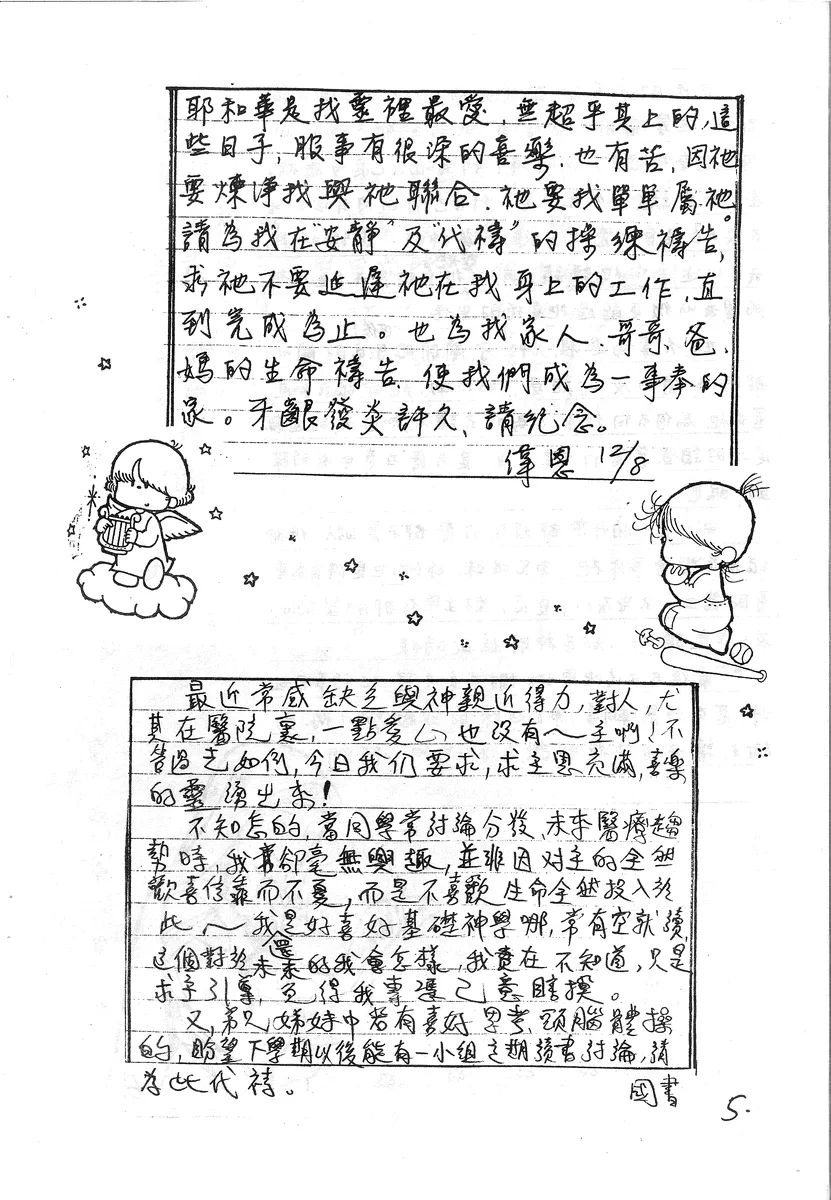 耶和華是我靈裡最愛,無超乎其上的,這
些日子,服事有很深的喜樂.也有苦,因祂
要煉淨我與祂聯合.祂要我單單屬祂。
請為我在"安靜"及"代禱"的操練禱告,
求祂不要延遲祂在我身上的工作,直
到完成為止。也為我家人、哥哥、爸、
媽的生命禱告.使我們成為一事奉的
家。牙齦發炎許久、請紀念。
偉恩 12/8
最近常感缺乏與神親近得力,對人,尤
其在醫院裏,一點愛心也沒有~主啊!不
如例,今日我们要求,求主恩充滿,喜樂
的靈湧出來!
不知怎的,當同學常討論分發、未來醫療趨
勢時,我卻毫無興趣,並非因对主的全然
歡喜信靠而不憂,而是不喜歡生命全然投入於
此~我是好喜好基礎神學哪,常有空就讀,
這個對於還未來的我會怎樣,我實在不知道,只是
求主引導,免得我專憑己意瞎摸。
又,弟兄姊妹中若有喜好思考、頭腦體操
的,盼望下學期以後能有一小組定期讀書討論,請
為此代禱。
國書
5.